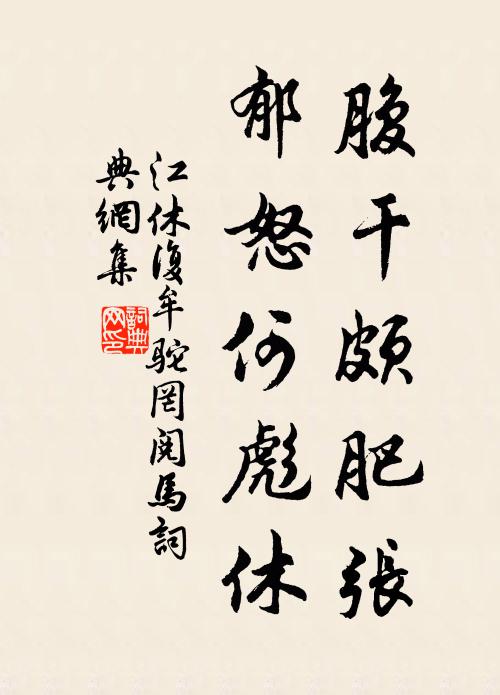 腹干頗肥張
郁怒何彪休
江休復牟駝罔閱馬詞
典網集
詞典网印